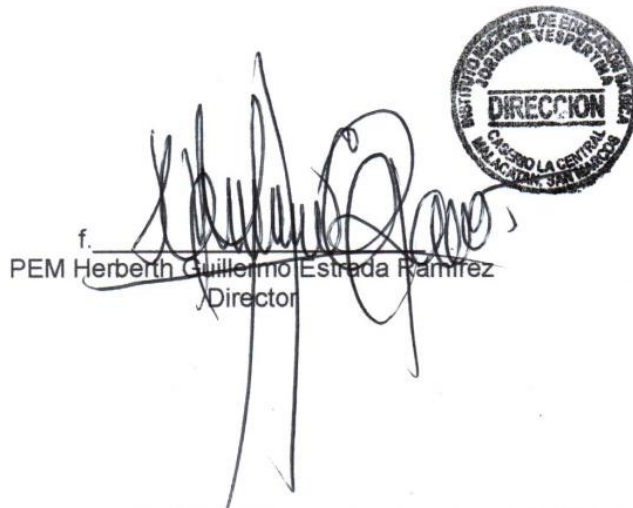 INSTITUTO NACIONAL DE EDUCACIÓN BÁSICA
JORNADA VESPERTINA
DIRECCION
CASERIO LA CENTRAL
MALACATAN, SAN MARCOS
f.
PEM Herberth Guillermo Estrada Ramírez
Director